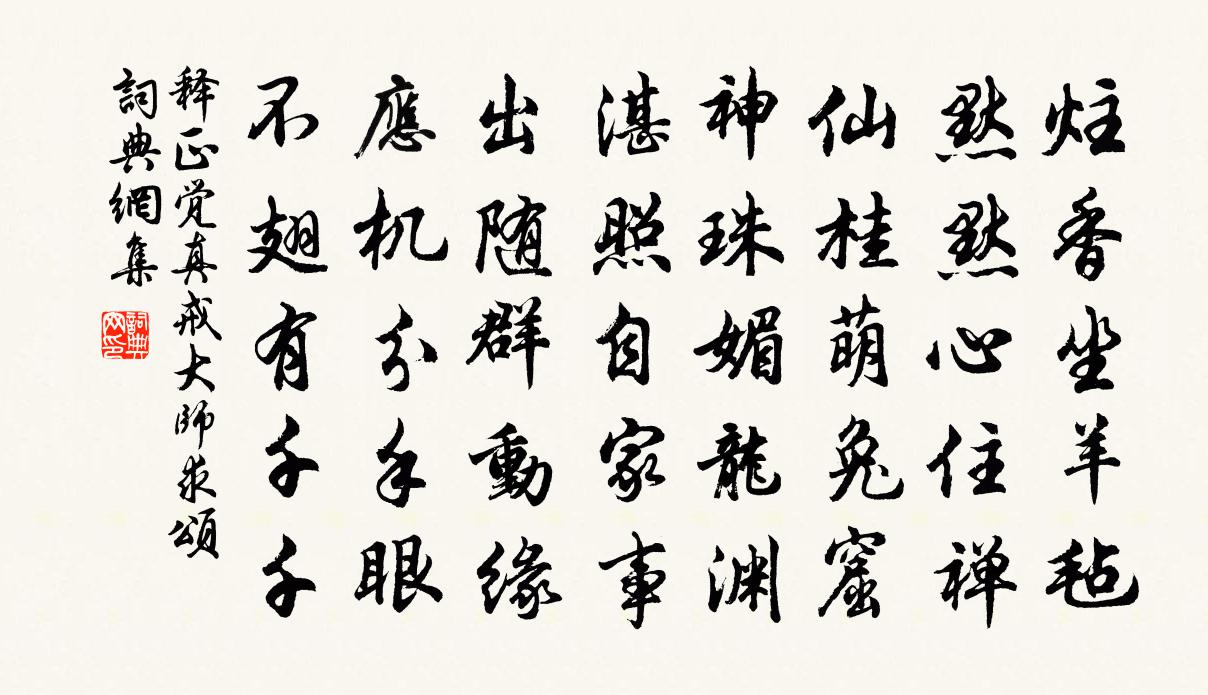 炷香坐羊毡
默默心住禅
仙桂萌兔窟
神珠媚龍渊
湛照自家事
出随群動缘
應机分手眼
不翅有千千
释正觉真戒大师求頌
詞典網集
詞典网印